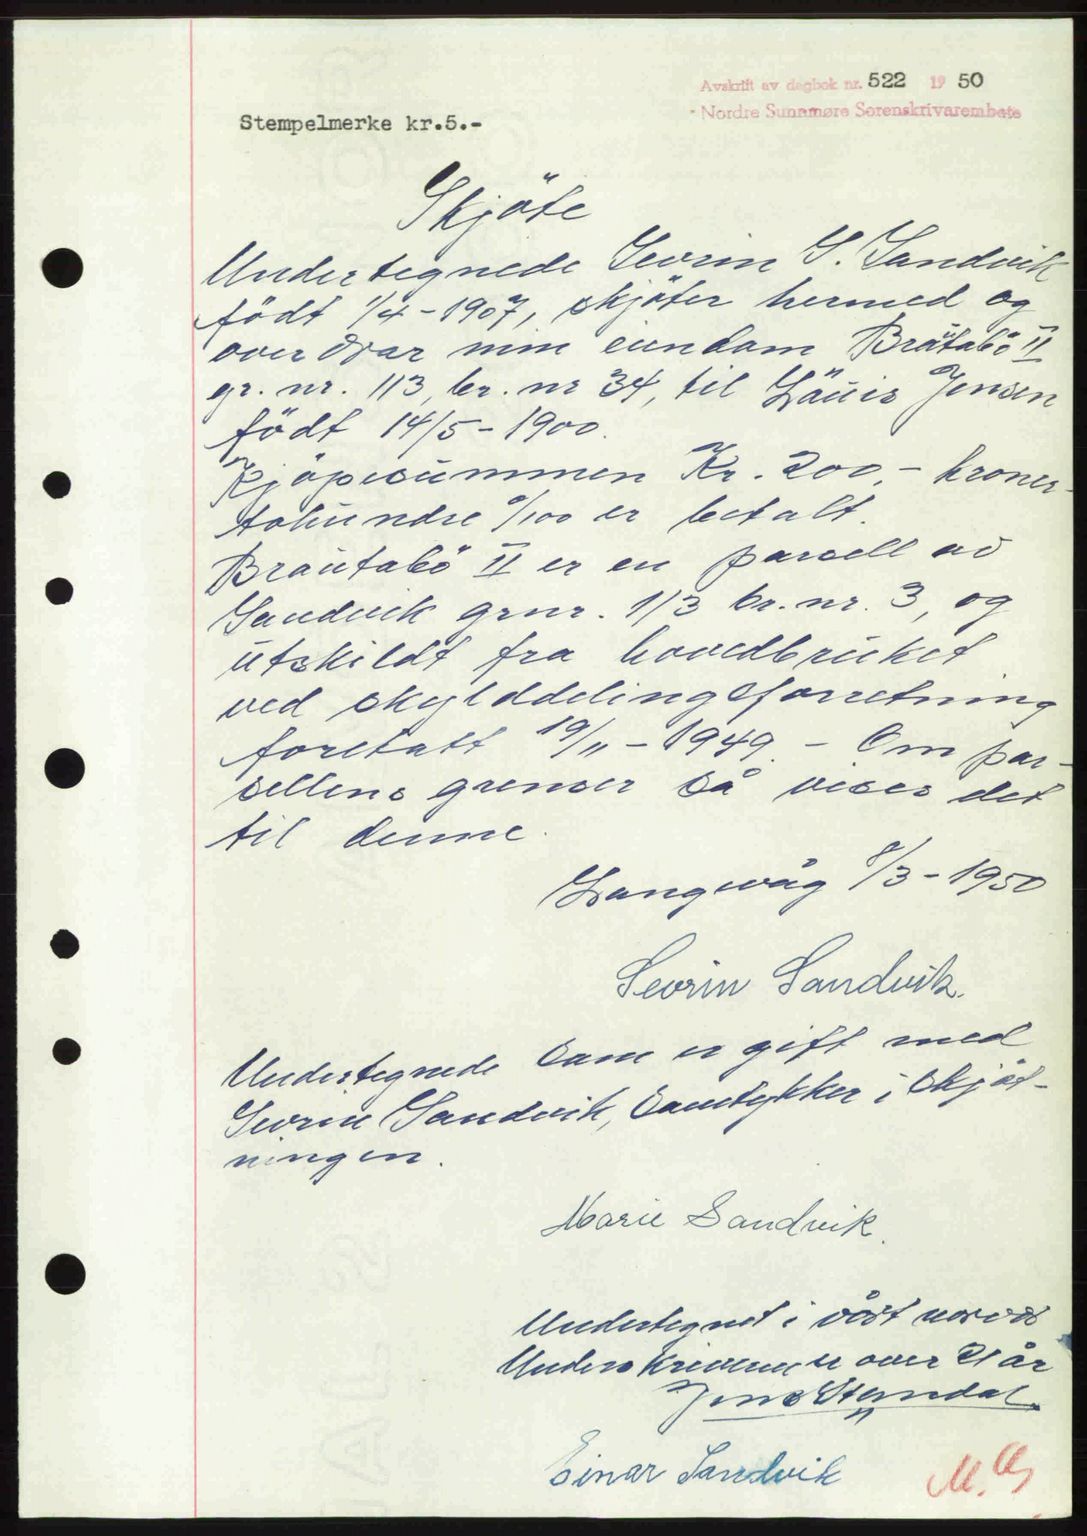 Avskrift av dagbok nr. 522 19 50
Nordre Sunnmøre Sorenskrivarembete
Stempelmerke kr.5.-
Skjöte
Undertegnede Sevrin S. Sandvik
födt 1/4-1907, skjöter hermed og
over drar min eiendom Brautabö II
gr. nr. 113, br. nr 34, til Lauis Jensen
födt 14/5-1900.
Kjöpesummen Kr. 200,- kroner-
tohundre 0/100 er betalt.
Brautabö II er en parsell av
Sandvik grnr. 113 br. nr. 3, og
utskildt fra hovedbruket
ved skylddelingsforretning
foretatt 19/11-1949. - Om par-
sellens grenser så vises det
til denne.
Langevåg 8/3-1950
Sevrin Sandvik.
Undertegnede som er gift med
Sevrin Sandvik, samtykker i skjöt-
ningen.
Marie Sandvik.
Undertegnet i vårt nærvær
Underskriverne er over 21 år
Jens
Einar Sandvik